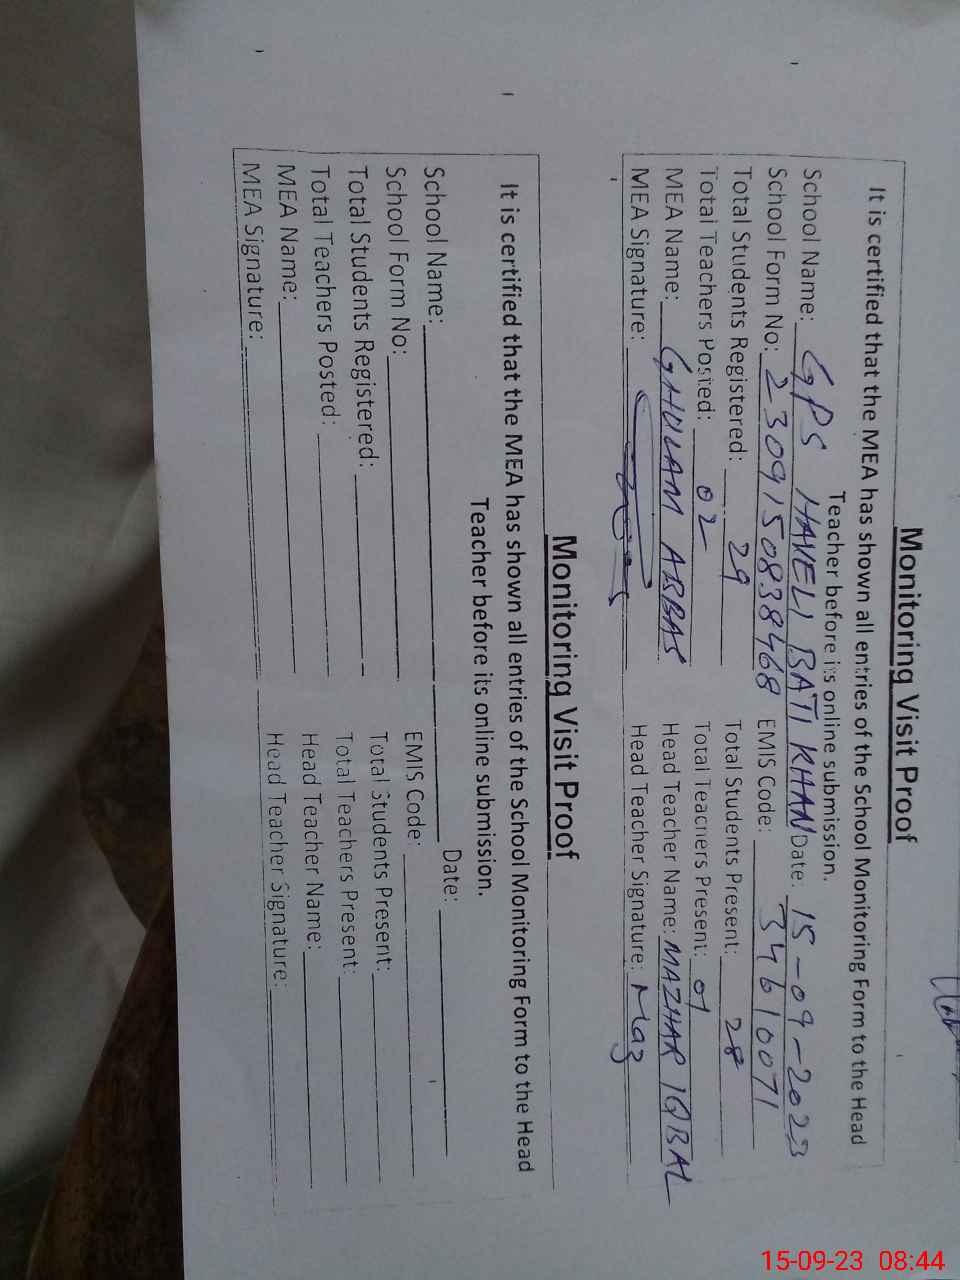 Monitoring Visit Proof
It is certified that the MEA has shown all entries of the School Monitoring Form to the Head
Teacher before its online submission.
School Name: GPS HAVELI BATI KHAN Date: 15-09-2023
School Form No: 2309150838468 EMIS Code: 34610071
Total Students Registered: 29 Total Students Present: 28
Total Teachers Posted: 02 Total Teachers Present: 01
MEA Name: GHULAM ABBAS Head Teacher Name: MAZHAR IQBAL
MEA Signature: Head Teacher Signature: Maz
Monitoring Visit Proof
It is certified that the MEA has shown all entries of the School Monitoring Form to the Head
Teacher before its online submission.
School Name: Date:
School Form No: EMIS Code:
Total Students Registered: Total Students Present:
Total Teachers Posted: Total Teachers Present:
MEA Name: Head Teacher Name:
MEA Signature: Head Teacher Signature:
15-09-23 08:44